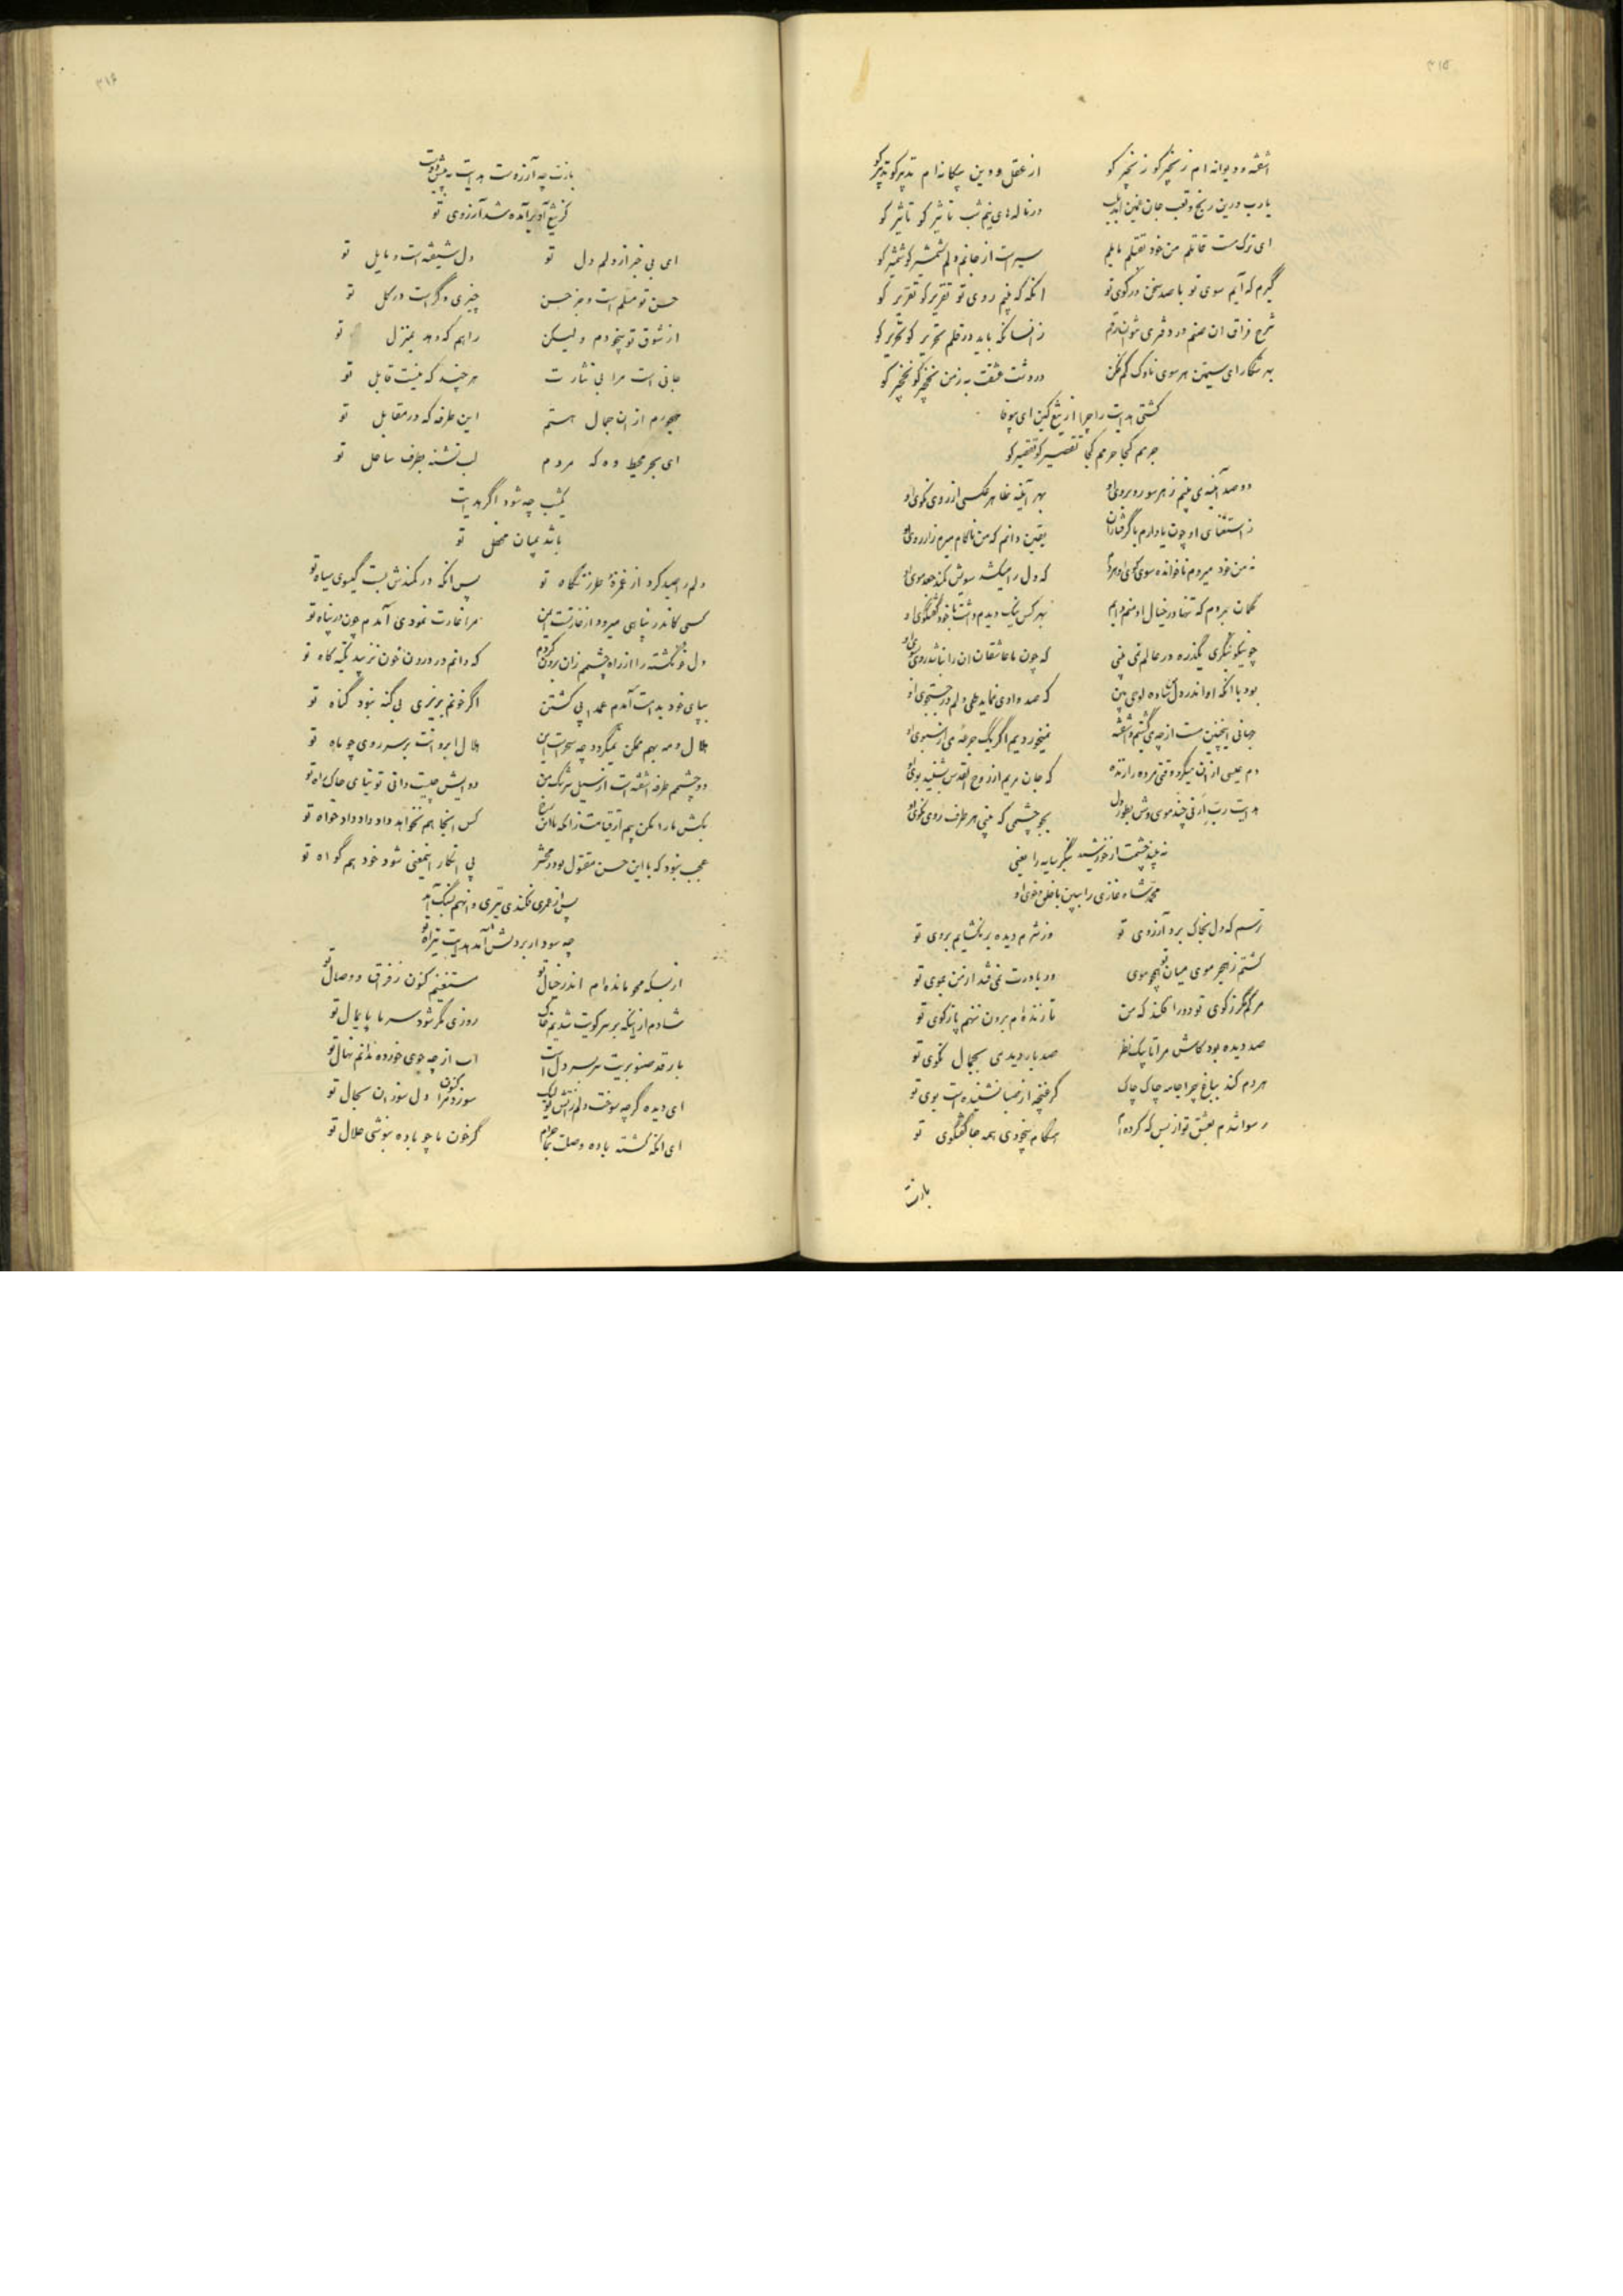 ۳۱۵
آشفته و دیوانه ام زنجیر کو زنجیر کو از عقل و دین بیگانه ام تدبیر کو تدبیر کو
یارب درین رنج و تعب جان غمین در ناله های نیم شب تاثیر کو تاثیر کو
ای ترک مست قاتلم من خود بقتلم مایلم سیر است از جانم دلم شمشیر کو شمشیر کو
گیرم که آیم سوی تو با صد سخن در کوی تو آنگه که بینم روی تو تقریر کو تقریر کو
شرح فراق آن صنم در دفتری شد زانسانکه باید در قلم تحریر کو تحریر کو
بهر شکار ای سیمتن هر سوی ناوک کم فکن در دشت عشقت به ز من نخجیر کو نخجیر کو
کشتی هدایت را چرا از تیغ کین ای بیوفا
جرمم کجا جرمم کجا تقصیر کو تقصیر کو
دو صد آیینه می بینم ز هر سو روبروی او بهر آیینه ظاهر عکسی از روی نکوی او
ز استغنای او چون یاد دارم با گرفتاران یقین دانم که من ناکام میرم ز آرزوی او
نه من خود میروم ناخوانده سوی کوی او هردم که دل را میکشد سویش کمند جعد موی او
گمان بردم که تنها در خیال او منم دایم بهر کس نیک دیدم داشت با خود گفتگوی او
چو نیکو بنگری یکذره در عالم نمی بینی که چون ما عاشقان آن را نباشد روی سوی او
بود با آنکه او اندر دل که صد وادی نماید طی دلم در جستجوی او
جهانی اینچنین مست از چه می گشتیم و آشفته نمیخوردیم اگر یک جرعه می از سبوی او
دم عیسی از آن میکرد وقتی مرده را زنده که جان مریم از روح القدس بشنید بوی او
هدایت رب ارنی چند موسی وش بطور دل بجو چشمی که بینی هر طرف روی نکوی او
نه بیند چشمت ار خورشید بنگر سایه را یعنی
محمد شاه غازی را ببین با خلق و خوی او
ترسم که دل بخاک برد آرزوی تو وز شرم دیده بر نگشایم بروی تو
گشتم ز هجر موی میان تو همچو موی ور باورت نمی فتد از من بموی تو
مرگم مگر ز کوی تو دور افکند که من تا زنده ام برون ننهم پا ز کوی تو
صد دیده بود کاش مرا تا بیک نظر صد بار دیدمی بجمال نکوی تو
هردم کند بباغ چرا جامه چاک چاک گر غنچه از صبا نشنیده است بوی تو
رسوا شدم بعشق تو از بس که کرده ام هنگام بیخودی همه جا گفتگوی تو
بازت
۳۱۶
بازت چه آرزوست هدایت به پیش دوست
کز تیغ او برآمده شد آرزوی تو
ای بی خبر از دلم دل تو دل شیفته است و مایل تو
حسن تو مسلم است و جز حسن چیزی دگر است در گل تو
از شوق تو بیخودم ولیکن راهم که دهد بمنزل تو
جانی است مرا پی نثارت هر چند که نیست قابل تو
مهجورم از آن جمال هستم این طرفه که در مقابل تو
ای بحر محیط وه که مردم لب تشنه بطرف ساحل تو
یکشب چه شود اگر هدایت
باشد بمیان محفل تو
دلم را صید کرد از غمزهٔ طرز نگاه تو پس آنگه در کمندش بست گیسوی سیاه تو
کسی کاندر پناهی میرود از غارتست ایمن مرا غارت نمودی آمدم چون در پناه تو
دل خونگشته را از راه چشم زان برون کردم که دانم در درون خون نزیبد تکیه گاه تو
بپای خود بدستت آمدم عمدا پی کشتن اگر خونم بریزی بی گنه نبود گناه تو
هلال و مه بهم ممکن نمیگردد چه سحرست این هلال ابروانت بر سر روی چو ماه تو
دو چشمم طرفه آشفته است از سیل سرشک من دوایش چیست دانی توتیای خاک راه تو
بکش ما را مکن بیم از قیامت زانکه با این رخ کس آنجا هم نخواهد داد داد دادخواه تو
عجب نبود که با این حسن مقتول بود در محشر پی انکار اینمعنی شود خود هم گواه تو
پس از عمری فکندی تیری و آنهم بسنگ آمد
چه سود ار بر دلش آمد هدایت تیر آه تو
از بسکه محو مانده ام اندر خیال تو مستغنیم کنون ز فراق و وصال تو
شادم از اینکه بر سر کویت شدیم خاک روزی مگر شود سر ما پایمال تو
بار قد صنوبریت سربسر دل است آب از چه جوی خورده ندانم نهال تو
ای دیده گرچه سوخت دلم ز آتش تو لیک سوزد کنون مرا دل سوزان بحال تو
ای آنکه گشته باده وصلت بما حرام گر خون ما چو باده بنوشی حلال تو